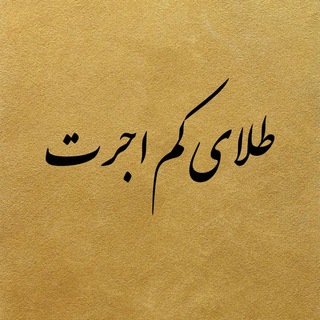 طلای کم اجرت